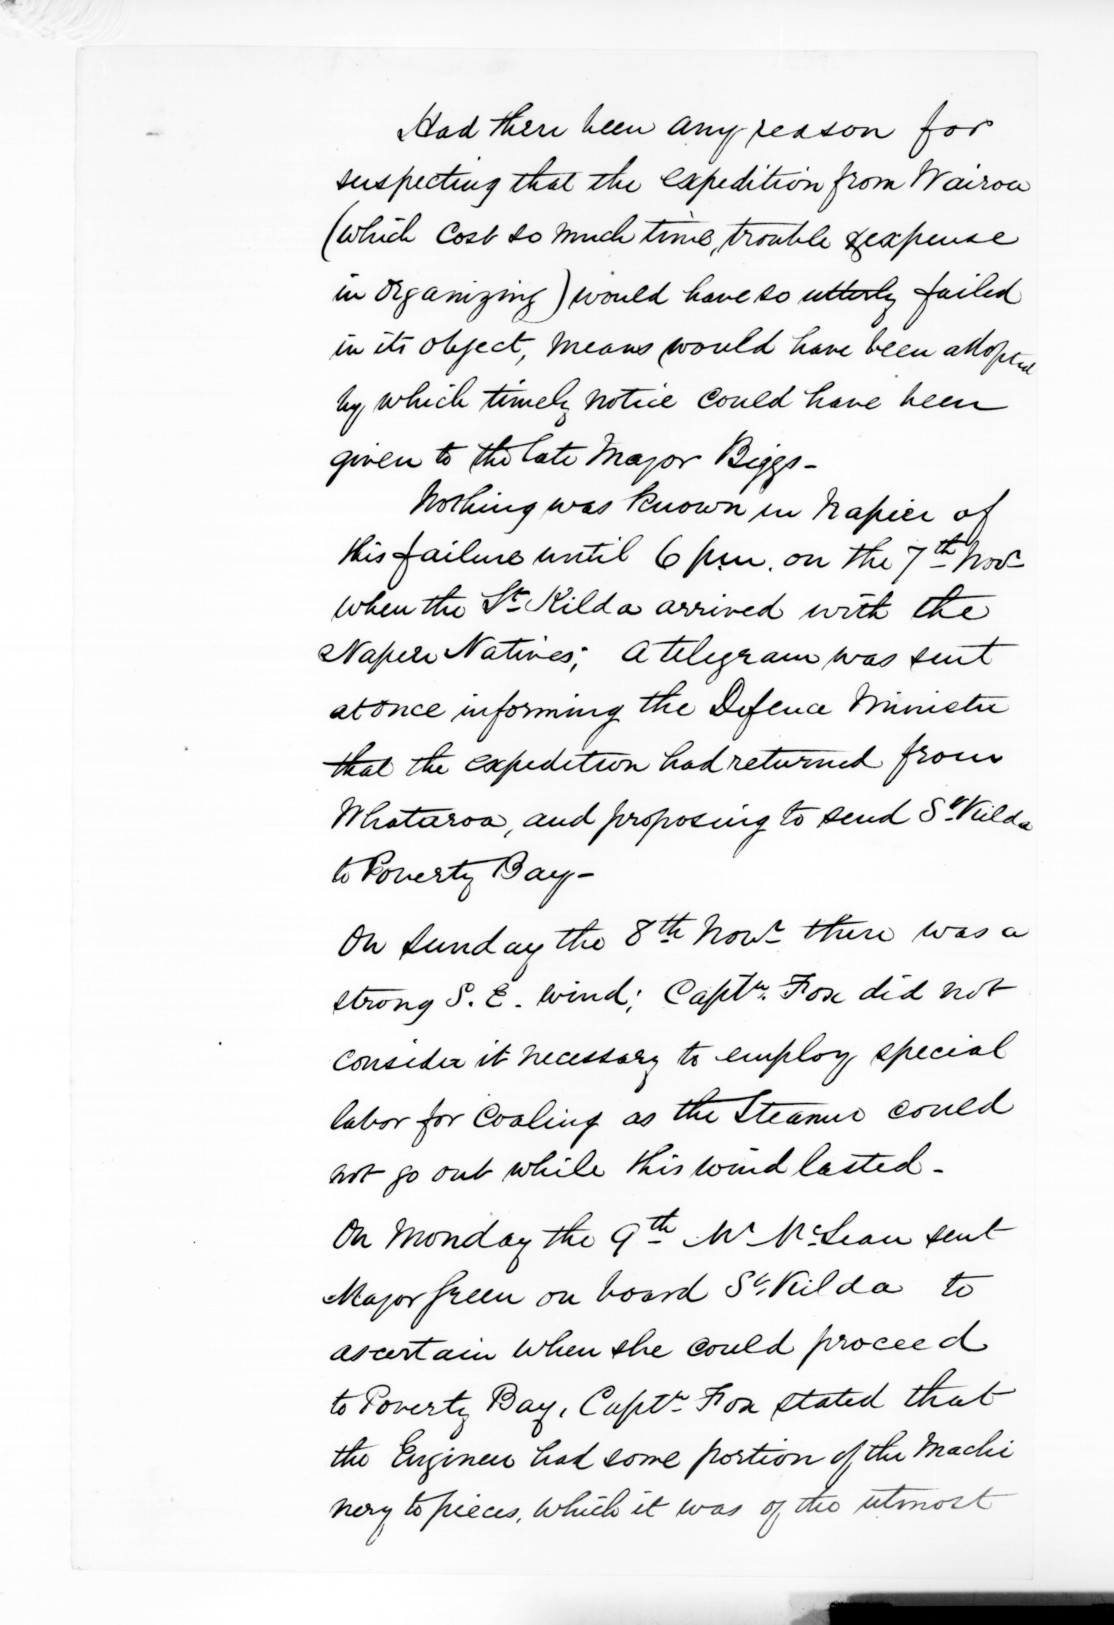 Had there been any reason for
suspecting that the expedition from Wairoa
(which cost so much time, trouble & expense
in organizing) would have so utterly failed
in its object, means would have been adopted
by which timely notice could have been
given to the late Major Biggs -
Nothing was known in Napier of
this failure until 6 p.m. on the 7th Novr
when the St Kilda arrived with the
Napier Natives; a telegram was sent
at once informing the Defence Minister
that the expedition had returned from
Whataroa, and proposing to send St Kilda
to Poverty Bay -
On Sunday the 8th Novr there was a
strong S. E. wind; Captn. Fox did not
consider it necessary to employ special
labor for coaling as the Steamer could
not go out while this wind lasted -
On Monday the 9th Mr McLean sent
Major Green on board St Kilda to
ascertain when she could proceed
to Poverty Bay, Captn Fox stated that
the Engineer had some portion of the Machi
nery to pieces, which it was of the utmost